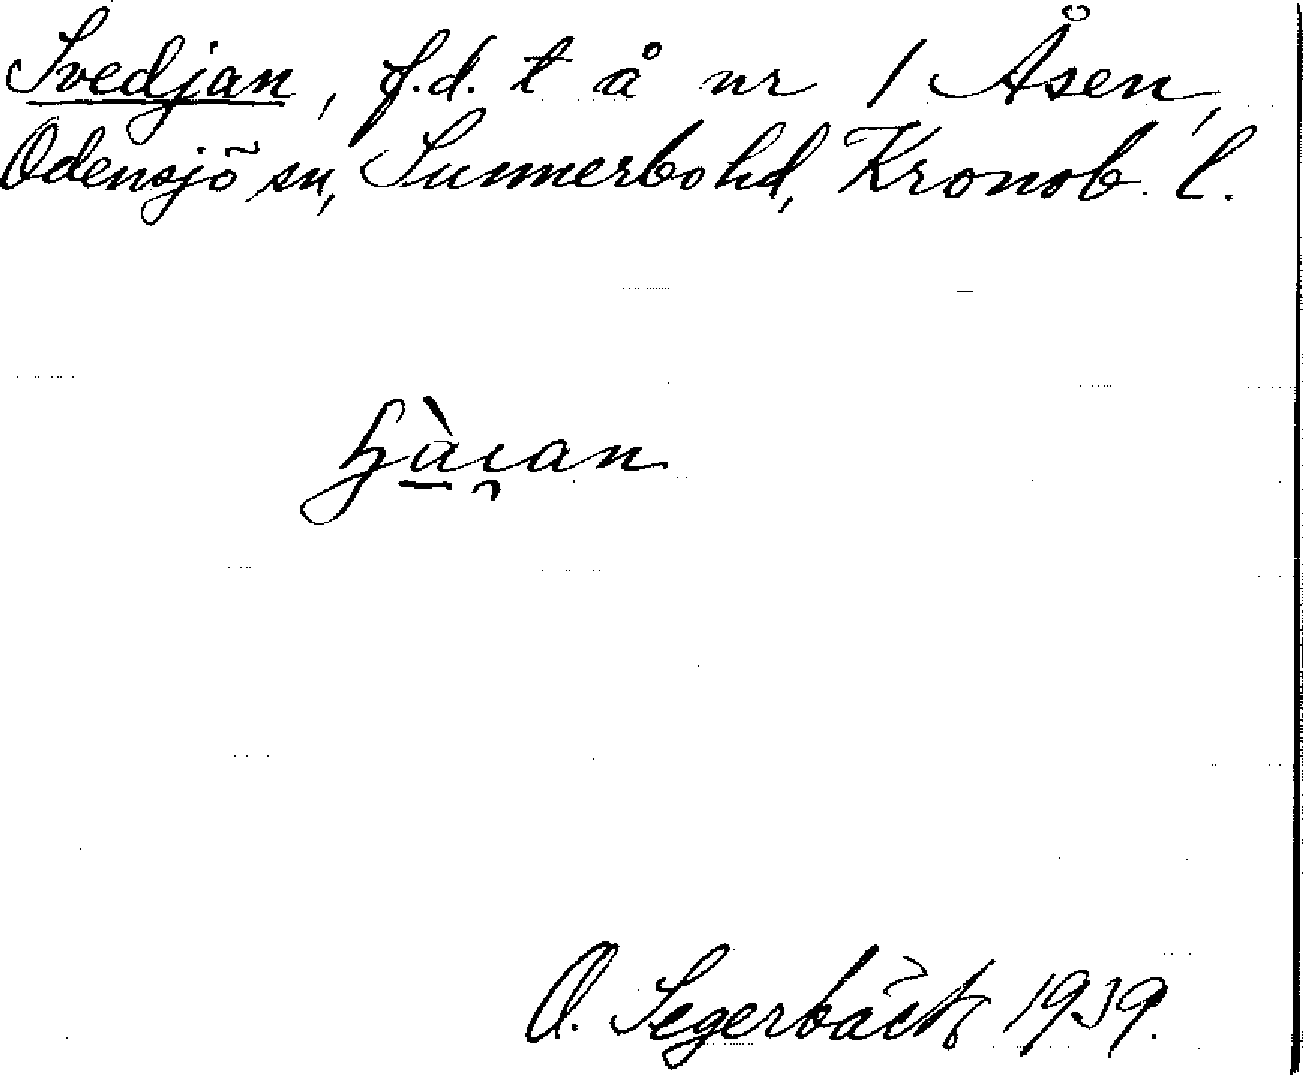 Svedjan, f.d. t å nr 1 Åsen,
Odensjö sn, Sunnerbo hd, Kronob. l.
O. Segerbäck 1939.